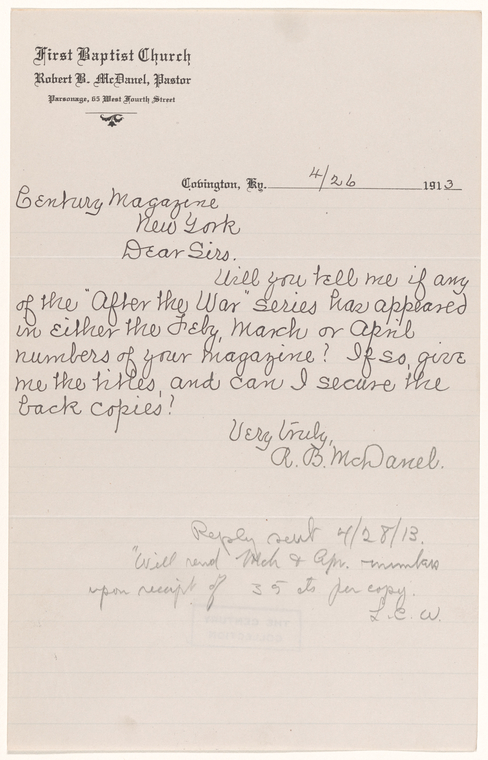 First Baptist Church
Robert B. McDanel, Pastor
Parsonage, 65 West Fourth Street
Covington, Ky. 4/26 1913
Century Magazine
New York
Dear Sirs.
Will you tell me if any
of the "After the War" series has appeared
in either the Feby, March or April
numbers of your magazine? If so, give
me the titles, and can I secure the
back copies?
Very truly,
R. B. McDanel.
Reply sent 4/28/13.
"Will send Mch & Apr. numbers
upon receipt of 35 cts per copy.
L. C. W.
THE CENTURY
COLLECTION